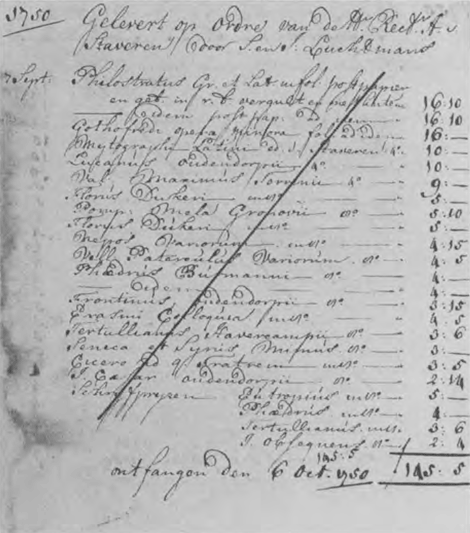 1750 Gelevert op ordre van de Hr. Rect. A. v.
Staveren door S. en J. Luchtmans
7 Sept. Philostratus Gr. et Lat. in fol. post papier
en geb. in r. b. vergult op 16:10
Idem post pap. 16:10
Gothofredi opera minora fol. 16:—
Mytographi Latini ed. v. Staveren 4º. 10:—
Lucanus Oudendorpii 4º. 10:—
Val. Maximus Torrenii 4º 9:—
Florus Dukeri 5:—
Pomp. Mela Gronovii 8º. 5:10
Florus Dukeri 5:—
Nepos Variorum 4:15
Vell. Paterculus Variorum 8º. 4:5
Phædrus Burmanni 8º. 4:—
— Idem 4:—
Frontinus Oudendorpii 8º. 3:15
Erasmi Colloquia 4:5
Tertullianus Havercampii 8º. 3:6
Seneca et Syrus Mimus 8º. 3:—
Cicero ad q. fratrem 3:5
J. Cæsar Oudendorpii 8º. 2:14
Schryfpapen Eutropius 5:—
Phædrus 4:—
Tertullianus 3:6
J. Obsequens 8º. 2:4
145:5
ontfangen den 6 Oct. 1750 145:5